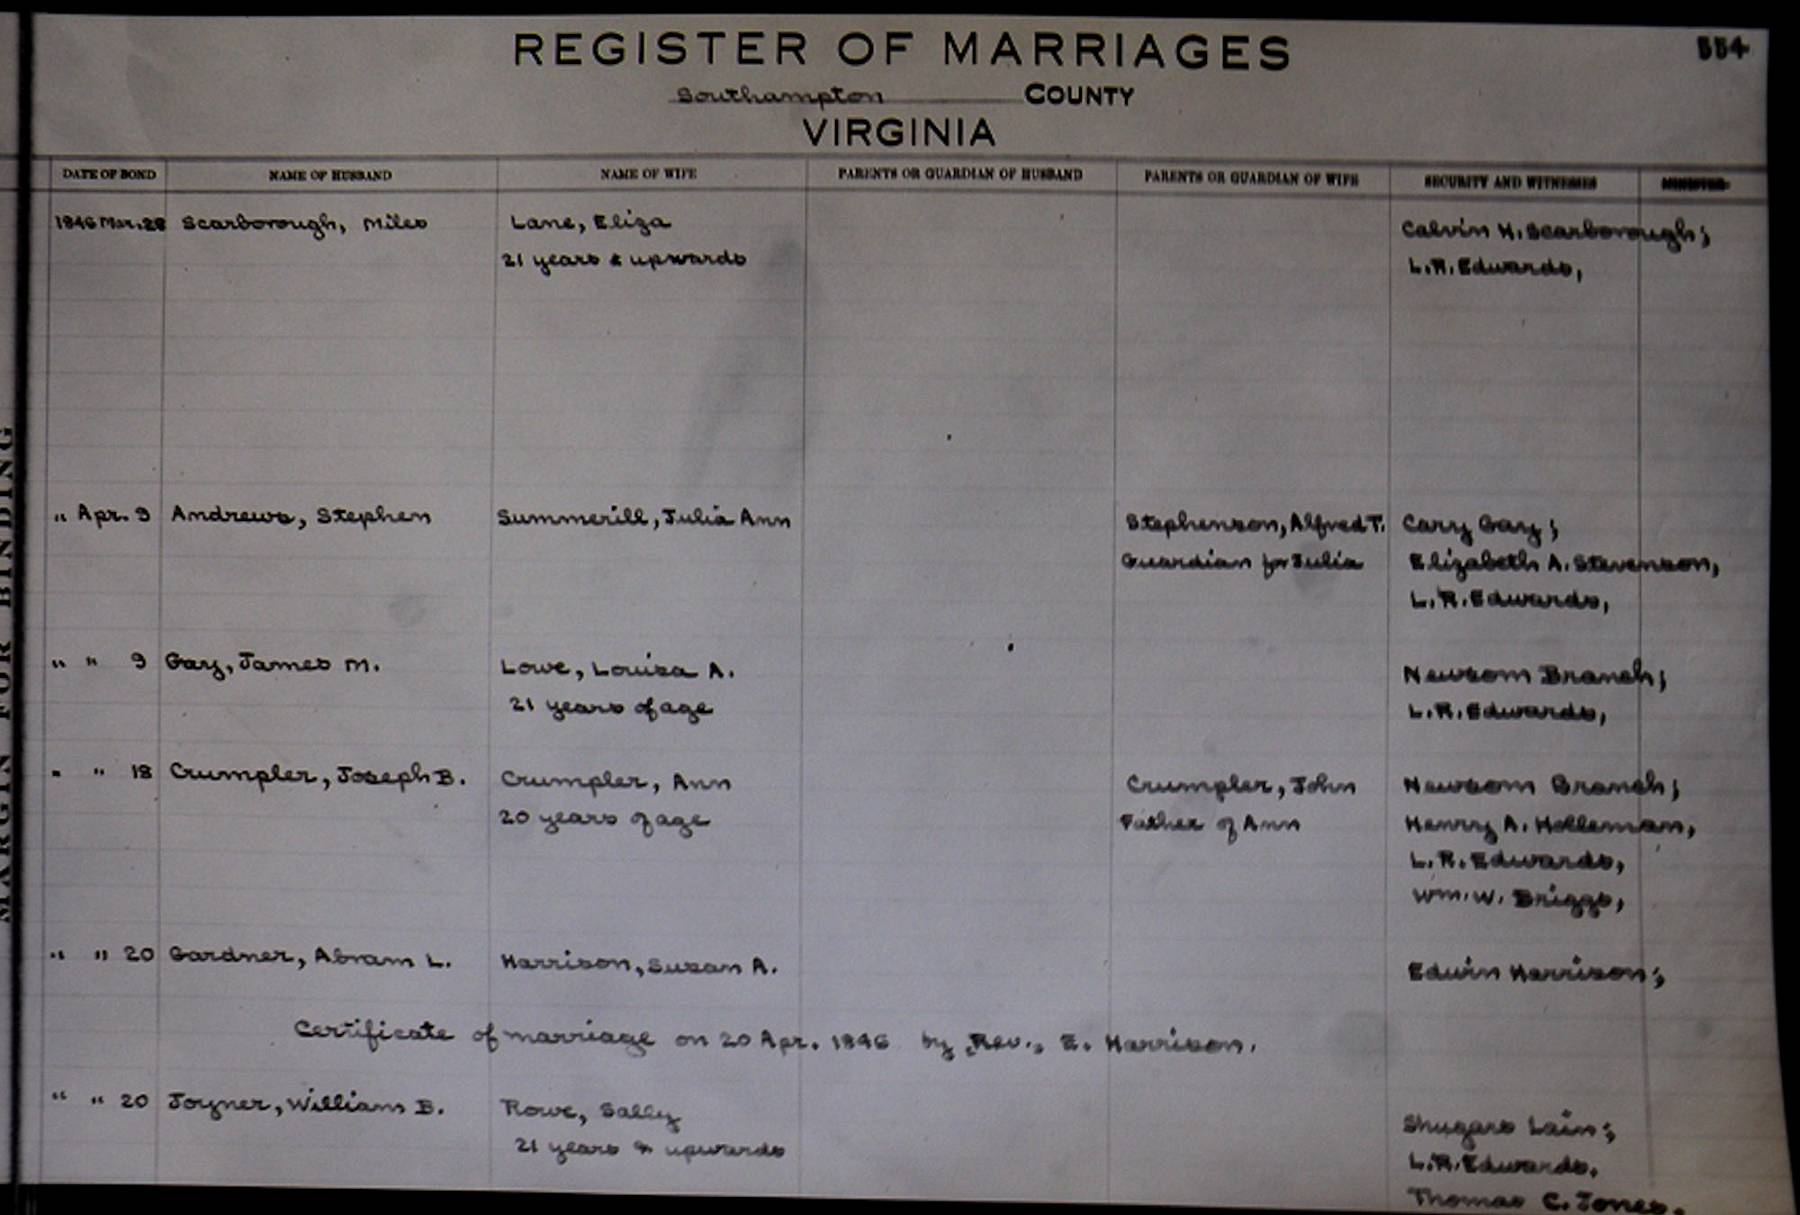 REGISTER OF MARRIAGES
554
Southampton COUNTY
VIRGINIA
DATE OF BOND NAME OF HUSBAND NAME OF WIFE PARENTS OR GUARDIAN OF HUSBAND PARENTS OR GUARDIAN OF WIFE SECURITY AND WITNESSES MINISTER
1846 Mar. 28 Scarborough, Miles Lane, Eliza Calvin H. Scarborough;
21 years & upwards L.R. Edwards,
" Apr. 9 Andrews, Stephen Summerill, Julia Ann Stephenson, Alfred T. Cary Gay;
Guardian for Julia Elizabeth A. Stevenson,
L.R. Edwards,
" " 9 Gay, James M. Lowe, Louisa A. Newsom Branch;
21 years of age L.R. Edwards,
" " 18 Crumpler, Joseph B. Crumpler, Ann Crumpler, John Newsom Branch;
20 years of age Father of Ann Henry A. Holleman,
L.R. Edwards,
Wm. W. Briggs,
" " 20 Gardner, Abram L. Harrison, Susan A. Edwin Harrison;
Certificate of marriage on 20 Apr. 1846 by Rev., E. Harrison.
" " 20 Joyner, William B. Rowe, Sally Shugars Lain;
21 years & upwards L.R. Edwards.
Thomas C. Jones.
MARGIN FOR BINDING